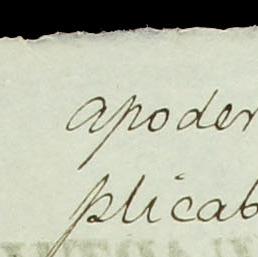 apoder
plicab